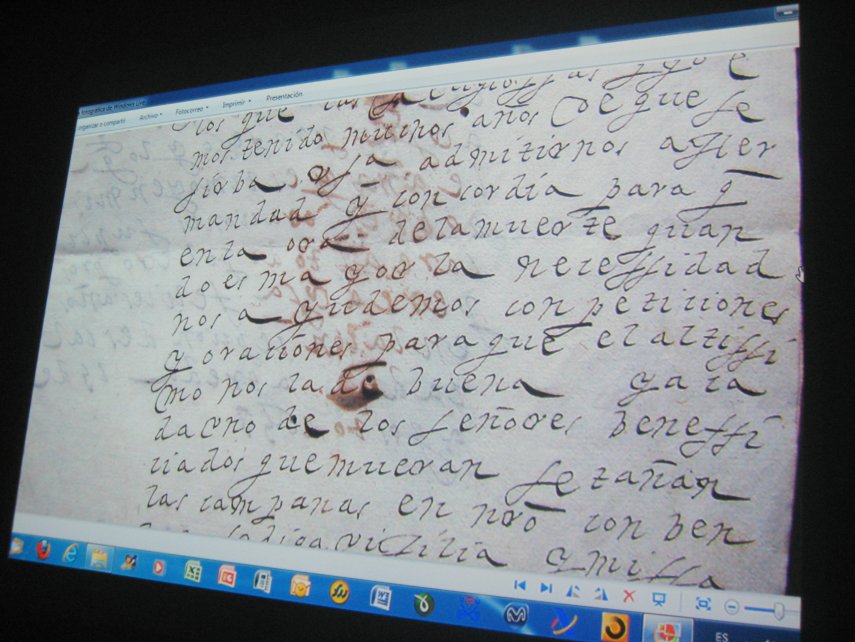 fotográfica de Windows Live
organizar o compartir Archivo Fotocorreo Imprimir Presentación
mos tenido muchos años De que se
sirba admitirnos a su er
mandad y concordia para q̄
en la ora de la muerte quan
do es mayor la necessidad
nos ayudemos con peticiones
y oraciones para que el altissi
mo nos la de buena y a ca
da uno de los señores beneffi
ciados que mueran se tañan
las campanas en nr̄o con ben
vixilia y missa
ES